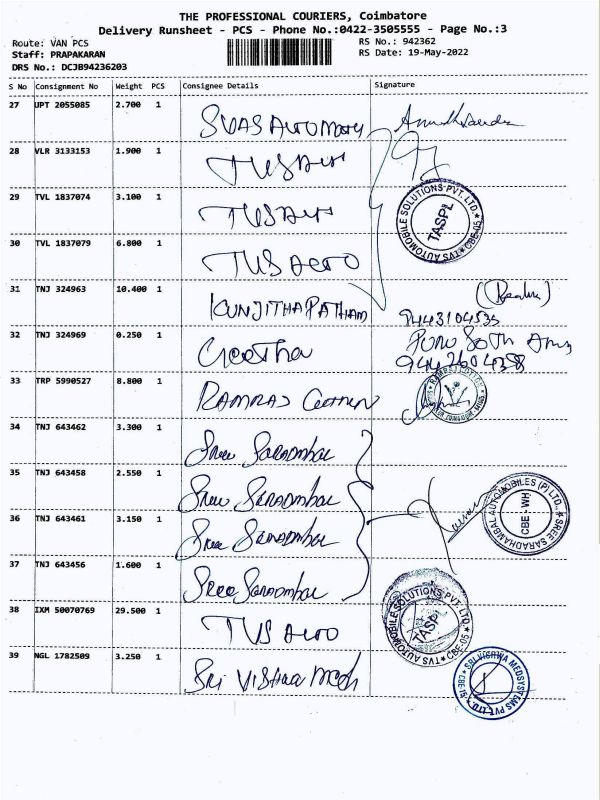 THE PROFESSIONAL COURIERS, Coimbatore
Delivery Runsheet - PCS - Phone No.:0422-3505555 - Page No.:3
Route: VAN PCS
RS No.: 942362
Staff: PRAPAKARAN
RS Date: 19-May-2022
DRS No.: DCJB94236203
S No Consignment No Weight PCS Consignee Details Signature
27 UPT 2055085 2.700 1
28 VLR 3133153 1.900 1
29 TVL 1837074 3.100 1
TVS AUTOMOBILE SOLUTIONS PVT. LTD. CBE-05
TASPL
30 TVL 1837079 6.800 1 TVS Aero
31 TNJ 324963 10.400 1 KUNJITHAPATHAM
9443104535
32 TNJ 324969 0.250 1 Geetha
33 TRP 5990527 8.800 1 RAMRAJ
34 TNJ 643462 3.300 1 Sree
35 TNJ 643458 2.550 1 Sree
36 TNJ 643461 3.150 1 Sree
SREE SARADHAMBAL AUTOMOBILES (P) LTD.,
CBE - WH
37 TNJ 643456 1.600 1 Sree
38 IXM 50070769 29.500 1 TVS Aero
TVS AUTOMOBILE SOLUTIONS PVT. LTD. CBE-05
TASPL
39 NGL 1782509 3.250 1 Sri Vishwa Medh
SRI VISHWA MEDSYSTEMS PVT. LTD.